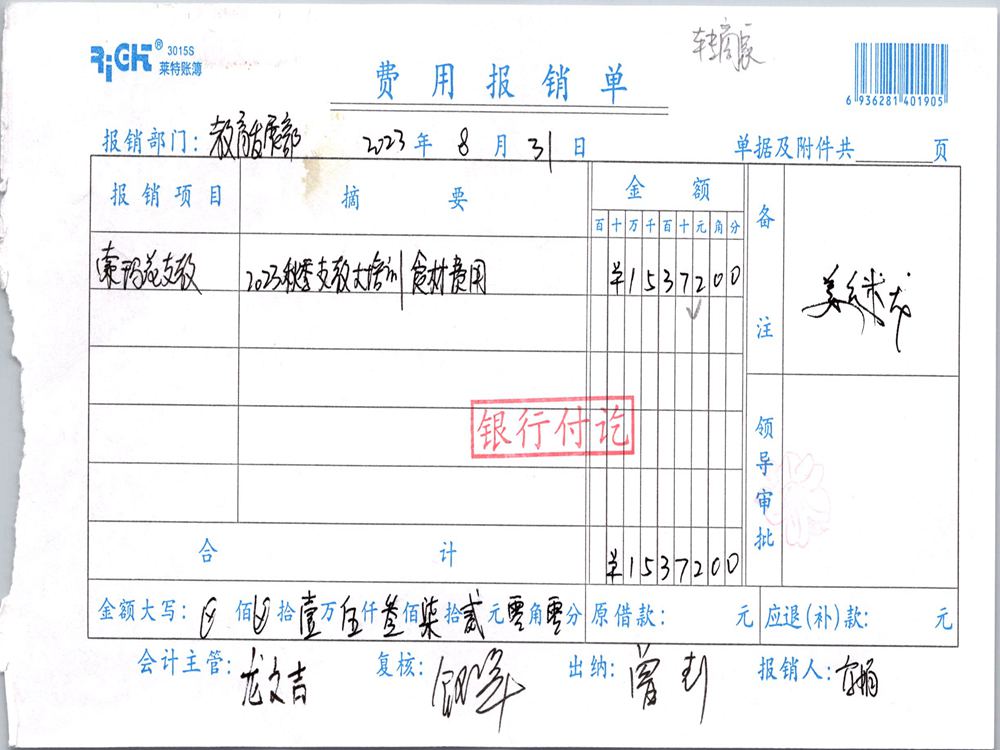 RiGHT® 3015S
莱特账簿
费用报销单
6 936281 401905
报销部门：教育发展部 2023年8月31日 单据及附件共 页
报销项目 摘要 金额 备注
百十万千百十元角分
索玛花支教 2023秋季支教大培训食材费用 ¥1537200
银行付讫
领导审批
合计 ¥1537200
金额大写：⊗佰⊗拾壹万伍仟叁佰柒拾贰元零角零分 原借款： 元 应退(补)款： 元
会计主管：龙文吉 复核： 出纳：曾 报销人：